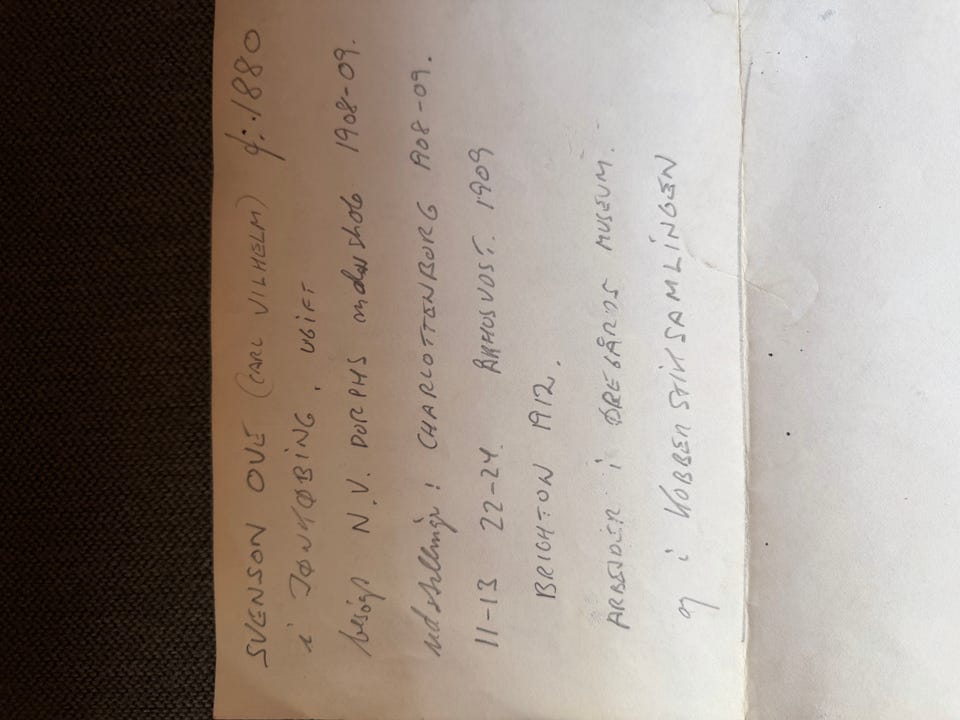 SVENSON OVE (CARL VILHELM) f:.1880
i JØNKØBING. UGIFT
besøgt N.V. DORPHS malerskole 1908-09.
udstillinger: CHARLOTTENBORG 1908-09.
11-13 22-24. ÅRHUSUDST. 1909
BRIGHTON 1912.
ARBEJDER i ØREGÅRDS MUSEUM.
og i KOBBERSTIKSAMLINGEN